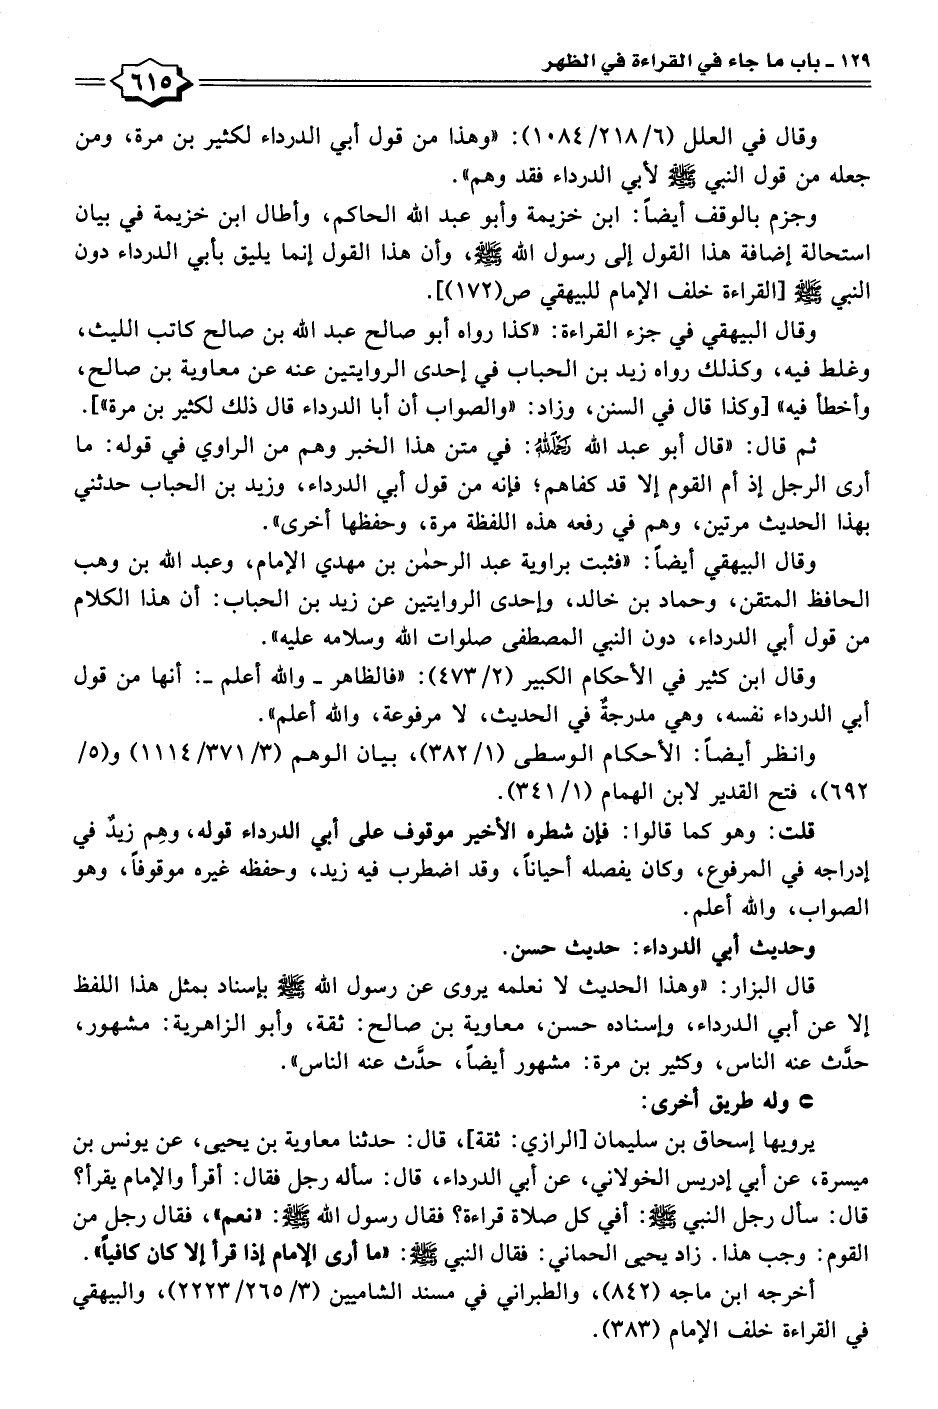 ١٢٩ - باب ما جاء في القراءة في الظهر
٦١٥
وقال في العلل (٦/ ٢١٨/ ١٠٨٤): «وهذا من قول أبي الدرداء لكثير بن مرة، ومن
جعله من قول النبي ﷺ لأبي الدرداء فقد وهم».
وجزم بالوقف أيضاً: ابن خزيمة وأبو عبد الله الحاكم، وأطال ابن خزيمة في بيان
استحالة إضافة هذا القول إلى رسول الله ﷺ، وأن هذا القول إنما يليق بأبي الدرداء دون
النبي ﷺ [القراءة خلف الإمام للبيهقي ص(١٧٢)].
وقال البيهقي في جزء القراءة: «كذا رواه أبو صالح عبد الله بن صالح كاتب الليث،
وغلط فيه، وكذلك رواه زيد بن الحباب في إحدى الروايتين عنه عن معاوية بن صالح،
وأخطأ فيه» [وكذا قال في السنن، وزاد: «والصواب أن أبا الدرداء قال ذلك لكثير بن مرة»].
ثم قال: «قال أبو عبد الله رحمه الله: في متن هذا الخبر وهم من الراوي في قوله: ما
أرى الرجل إذ أم القوم إلا قد كفاهم؛ فإنه من قول أبي الدرداء، وزيد بن الحباب حدثني
بهذا الحديث مرتين، وهم في رفعه هذه اللفظة مرة، وحفظها أخرى».
وقال البيهقي أيضاً: «فثبت براوية عبد الرحمٰن بن مهدي الإمام، وعبد الله بن وهب
الحافظ المتقن، وحماد بن خالد، وإحدى الروايتين عن زيد بن الحباب: أن هذا الكلام
من قول أبي الدرداء، دون النبي المصطفى صلوات الله وسلامه عليه».
وقال ابن كثير في الأحكام الكبير (٢/ ٤٧٣): «فالظاهر ـ والله أعلم ـ: أنها من قول
أبي الدرداء نفسه، وهي مدرجةٌ في الحديث، لا مرفوعة، والله أعلم».
وانظر أيضاً: الأحكام الوسطى (١/ ٣٨٢)، بيان الوهم (٣/ ٣٧١/ ١١١٤) و(٥/
٦٩٢)، فتح القدير لابن الهمام (١/ ٣٤١).
قلت: وهو كما قالوا: فإن شطره الأخير موقوف على أبي الدرداء قوله، وهِم زيدٌ في
إدراجه في المرفوع، وكان يفصله أحياناً، وقد اضطرب فيه زيد، وحفظه غيره موقوفاً، وهو
الصواب، والله أعلم.
وحديث أبي الدرداء: حديث حسن.
قال البزار: «وهذا الحديث لا نعلمه يروى عن رسول الله ﷺ بإسناد بمثل هذا اللفظ
إلا عن أبي الدرداء، وإسناده حسن، معاوية بن صالح: ثقة، وأبو الزاهرية: مشهور،
حدَّث عنه الناس، وكثير بن مرة: مشهور أيضاً، حدَّث عنه الناس».
⮊ وله طريق أخرى:
يرويها إسحاق بن سليمان [الرازي: ثقة]، قال: حدثنا معاوية بن يحيى، عن يونس بن
ميسرة، عن أبي إدريس الخولاني، عن أبي الدرداء، قال: سأله رجل فقال: أقرأ والإمام يقرأ؟
قال: سأل رجل النبي ﷺ: أفي كل صلاة قراءة؟ فقال رسول الله ﷺ: «نعم»، فقال رجل من
القوم: وجب هذا. زاد يحيى الحماني: فقال النبي ﷺ: «ما أرى الإمام إذا قرأ إلا كان كافياً».
أخرجه ابن ماجه (٨٤٢)، والطبراني في مسند الشاميين (٣/ ٢٦٥/ ٢٢٢٣)، والبيهقي
في القراءة خلف الإمام (٣٨٣).